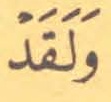 وَلَقَدْ